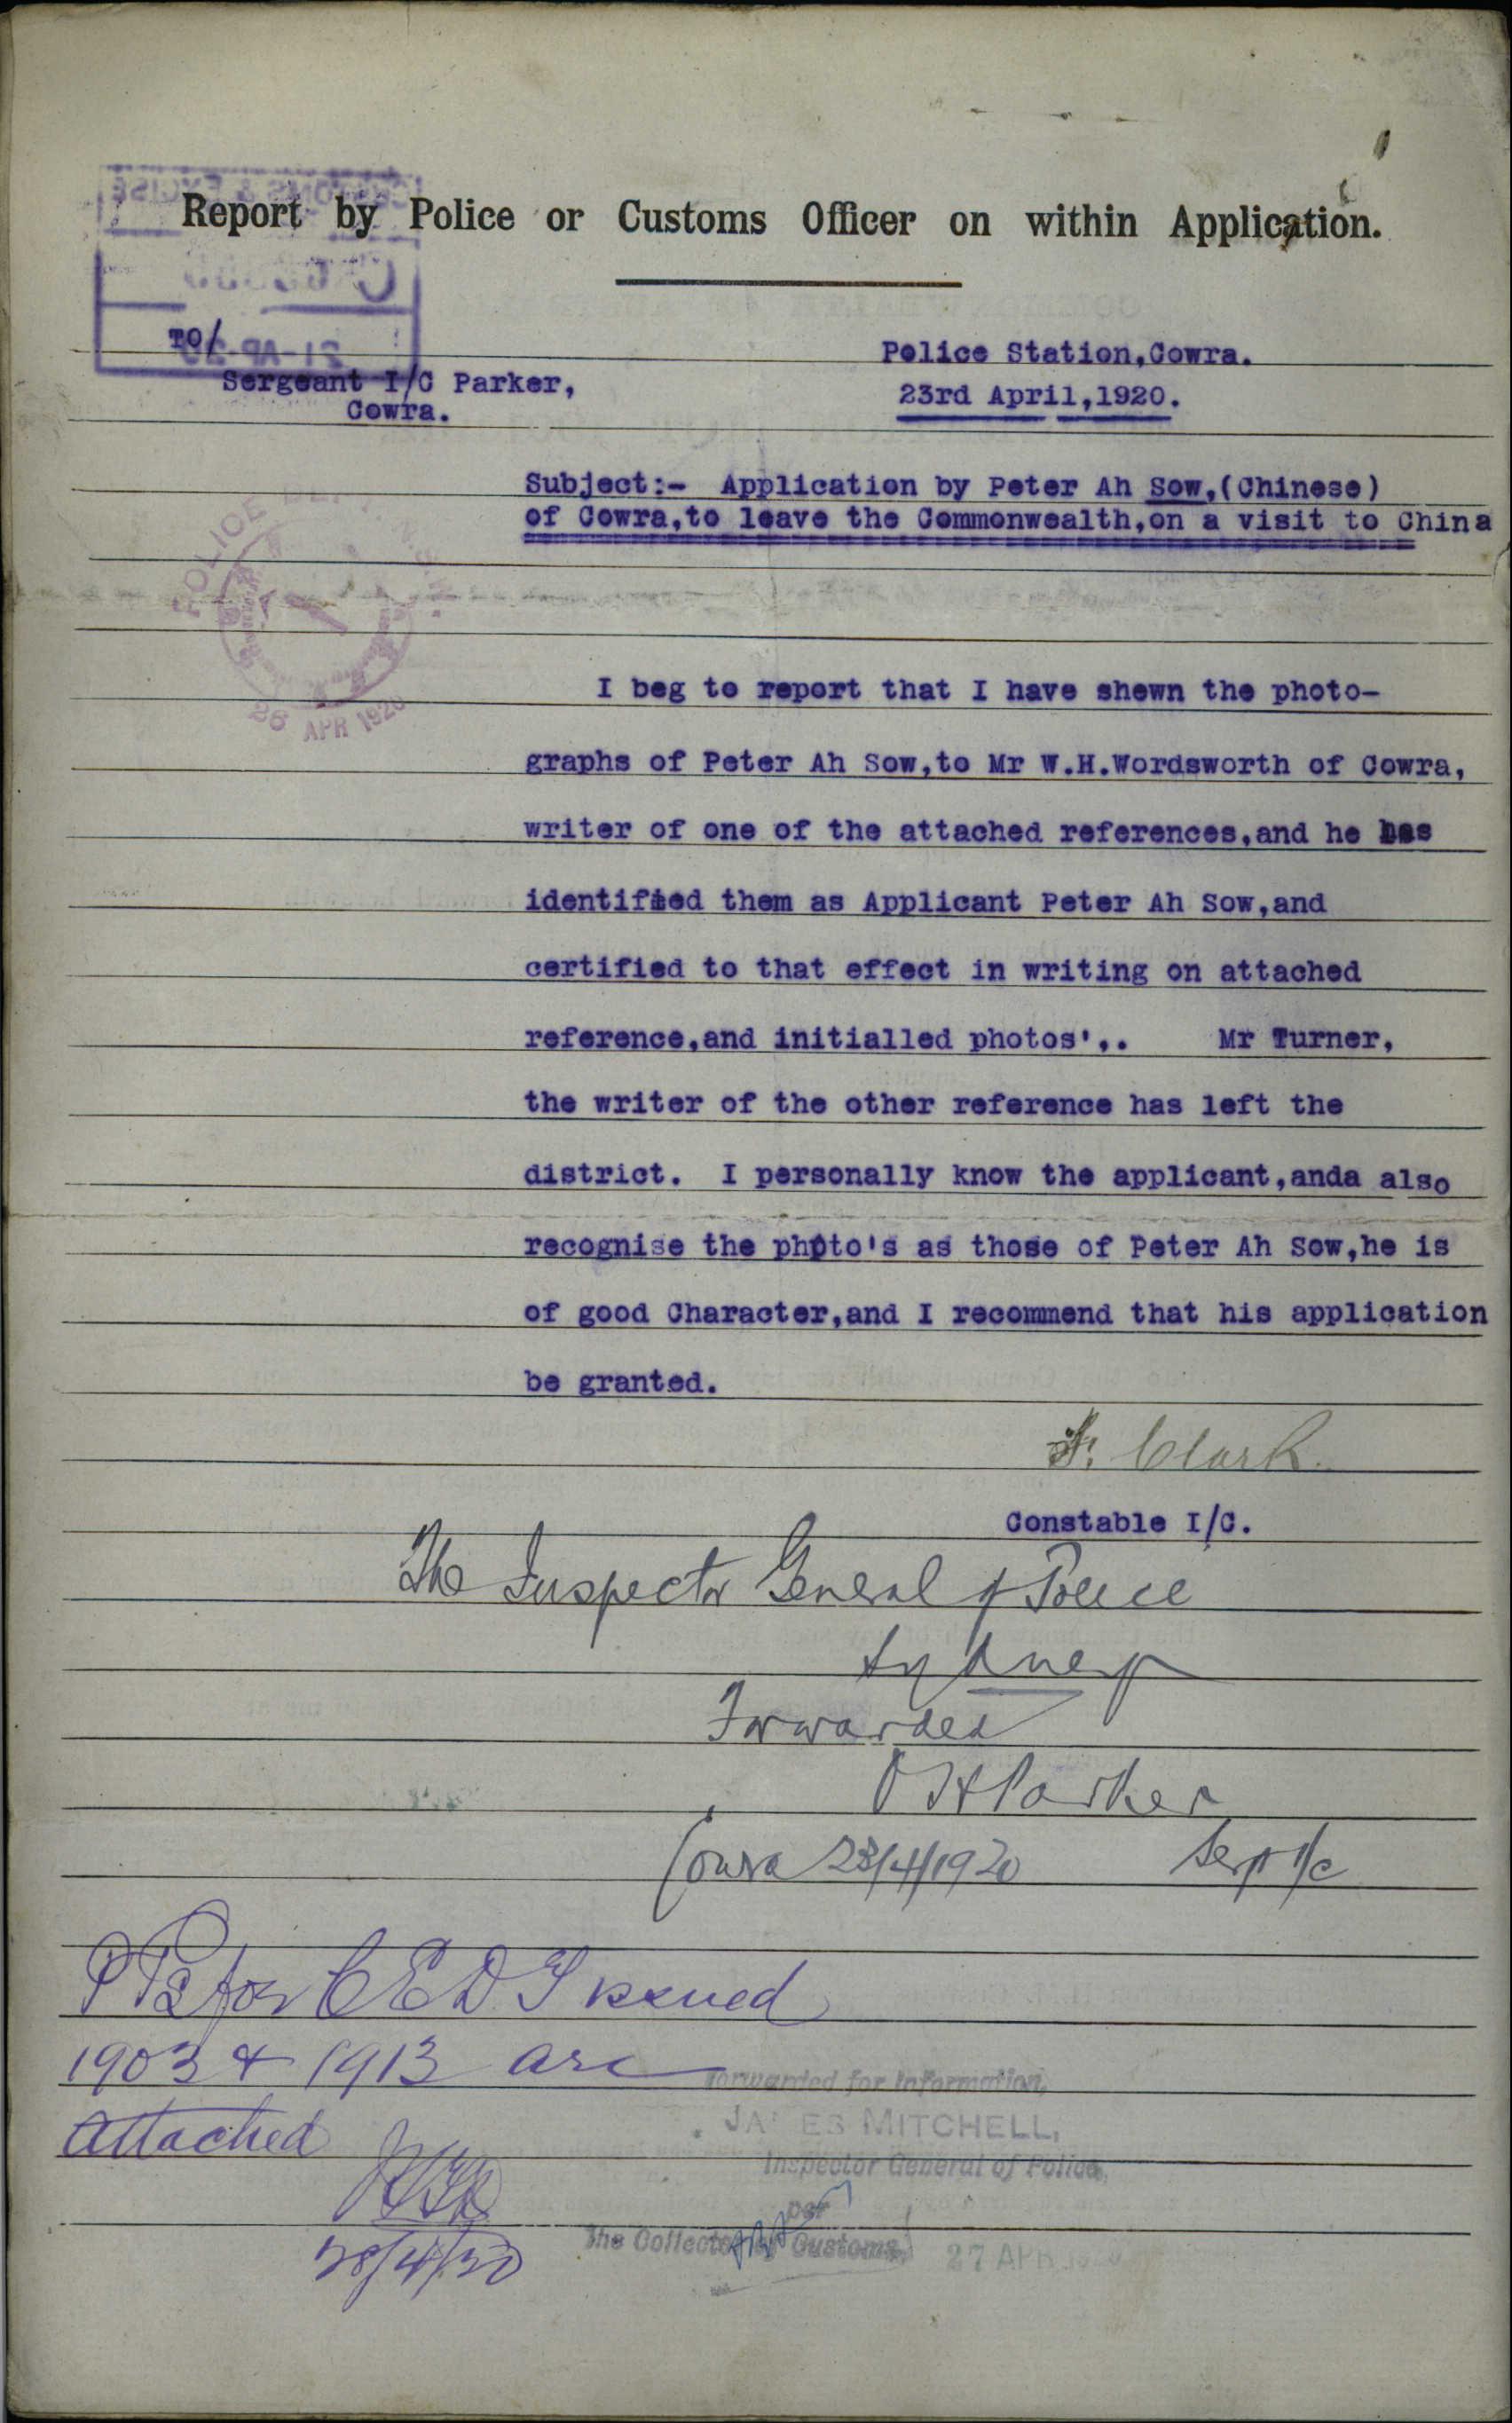 Report by Police or Customs Officer on within Application.
TO/
Police Station,Cowra.
Sergeant I/C Parker,
Cowra.
23rd April,1920.
Subject:- Application by Peter Ah Sow,(Chinese)
of Cowra,to leave the Commonwealth,on a visit to China
POLICE
26 APR 1920
I beg to report that I have shewn the photo-
graphs of Peter Ah Sow,to Mr W.H.Wordsworth of Cowra,
writer of one of the attached references,and he has
identified them as Applicant Peter Ah Sow,and
certified to that effect in writing on attached
reference,and initialled photos',. Mr Turner,
the writer of the other reference has left the
district. I personally know the applicant,anda also
recognise the photo's as those of Peter Ah Sow,he is
of good Character,and I recommend that his application
be granted.
Clark.
Constable I/C.
The Inspector General of Police
Sydney
Forwarded
Parker
Cowra 23/4/1920 Sergt I/C
for CEDT issued
1903 & 1913 are
Attached
28/4/20
Forwarded for Information,
JAMES MITCHELL,
Inspector General of Police,
per
The Collector of Customs,
27 APR 1920